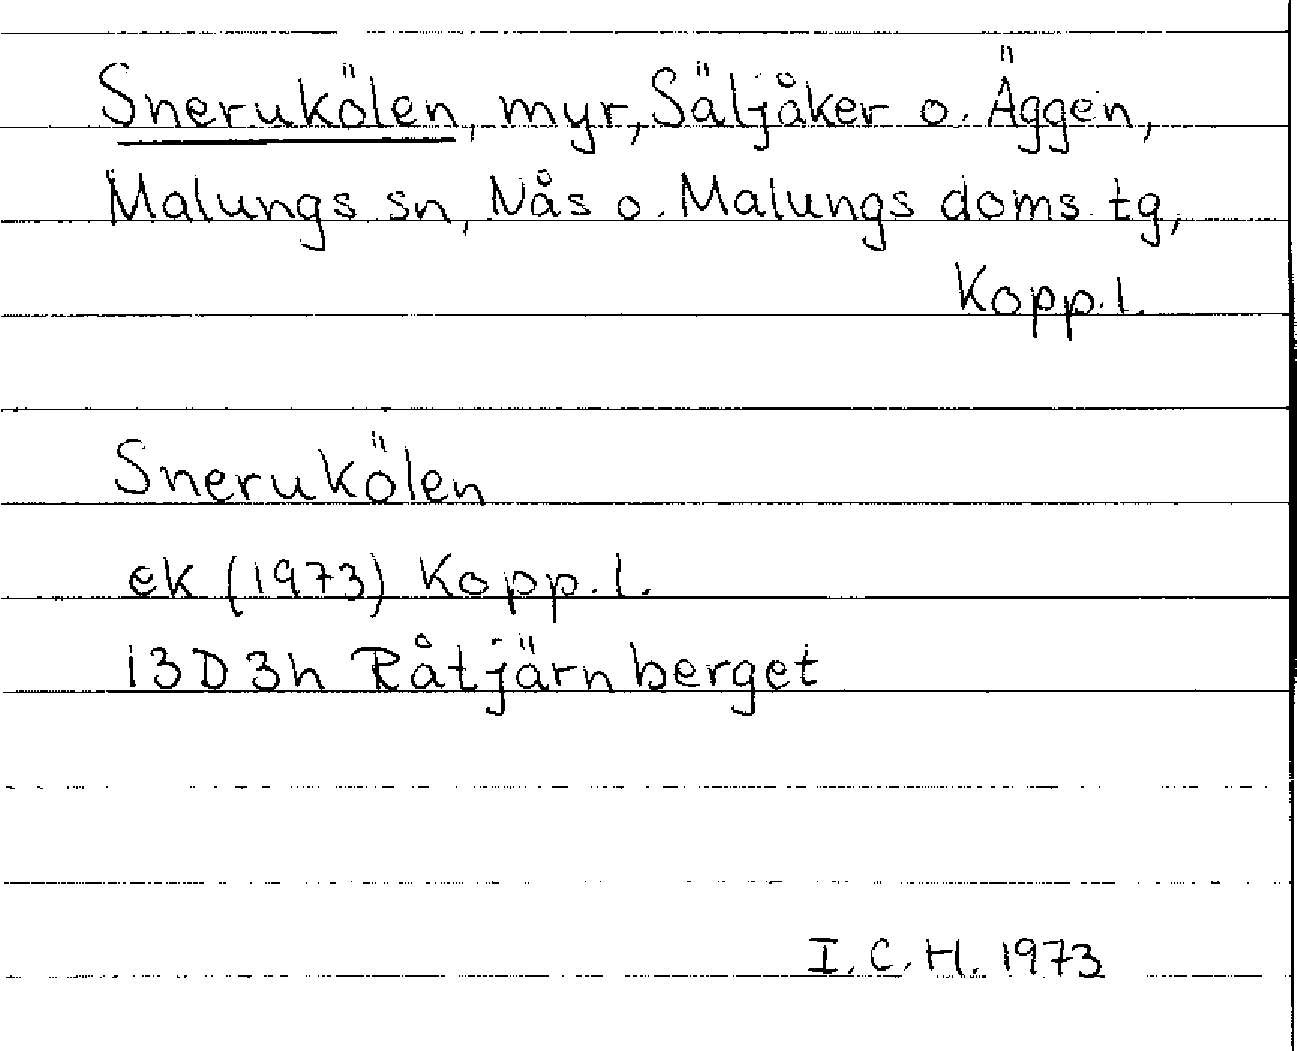 Snerukölen, myr, Säljåker o. Äggen,
Malungs sn, Nås o. Malungs doms. tg,
Kopp. l.
Snerukölen
ek (1973) Kopp. l.
13D3h Råtjärnberget
I. C. H. 1973